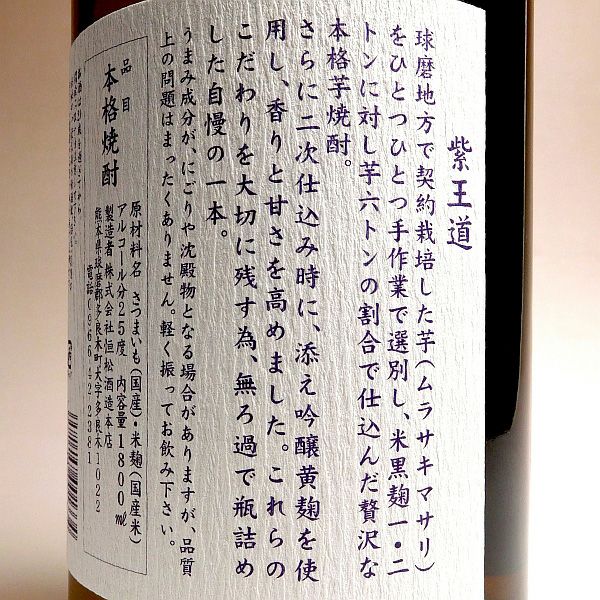 紫王道
球磨地方で契約栽培した芋(ムラサキマサリ)
をひとつひとつ手作業で選別し、米黒麹一・二
トンに対し芋六トンの割合で仕込んだ贅沢な
本格芋焼酎。
さらに二次仕込み時に、添え吟醸黄麹を使
用し、香りと甘さを高めました。これらの
こだわりを大切に残す為、無ろ過で瓶詰め
した自慢の一本。
うまみ成分が、にごりや沈殿物となる場合がありますが、品質
上の問題はまったくありません。軽く振ってお飲み下さい。
品目
本格焼酎
原材料名 さつまいも(国産)・米麹(国産米)
アルコール分25度 内容量1800㎖
製造者 株式会社恒松酒造本店
熊本県球磨郡多良木町大字多良木1022
電話 0966-42-2381